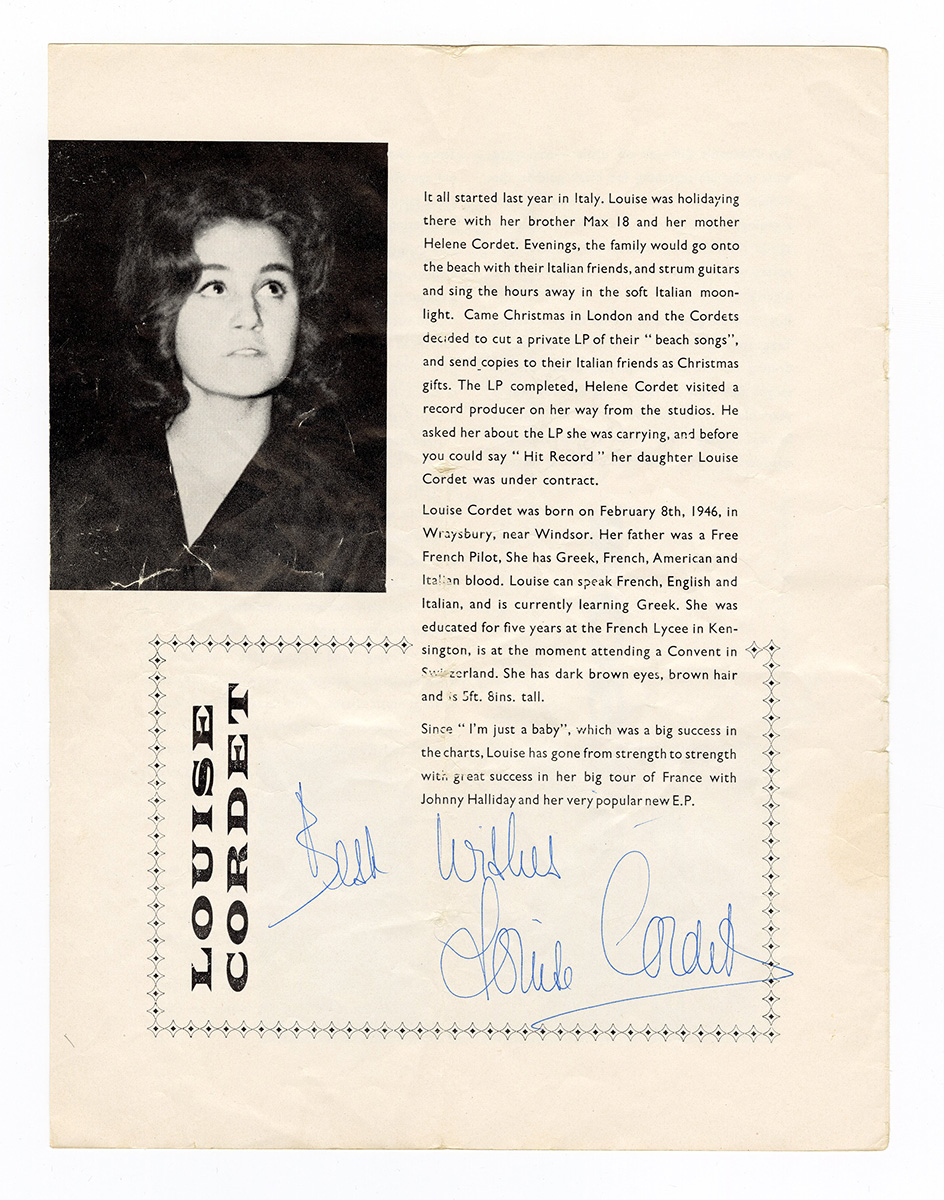 It all started last year in Italy. Louise was holidaying
there with her brother Max 18 and her mother
Helene Cordet. Evenings, the family would go onto
the beach with their Italian friends, and strum guitars
and sing the hours away in the soft Italian moon-
light. Came Christmas in London and the Cordets
decided to cut a private LP of their “ beach songs”,
and send copies to their Italian friends as Christmas
gifts. The LP completed, Helene Cordet visited a
record producer on her way from the studios. He
asked her about the LP she was carrying, and before
you could say “ Hit Record ” her daughter Louise
Cordet was under contract.
Louise Cordet was born on February 8th, 1946, in
Wraysbury, near Windsor. Her father was a Free
French Pilot, She has Greek, French, American and
Italian blood. Louise can speak French, English and
Italian, and is currently learning Greek. She was
educated for five years at the French Lycee in Ken-
sington, is at the moment attending a Convent in
Switzerland. She has dark brown eyes, brown hair
and is 5ft. 8ins. tall.
Since “ I'm just a baby”, which was a big success in
the charts, Louise has gone from strength to strength
with great success in her big tour of France with
Johnny Halliday and her very popular new E.P.
LOUISE
CORDET
Best Wishes
Louise Cordet